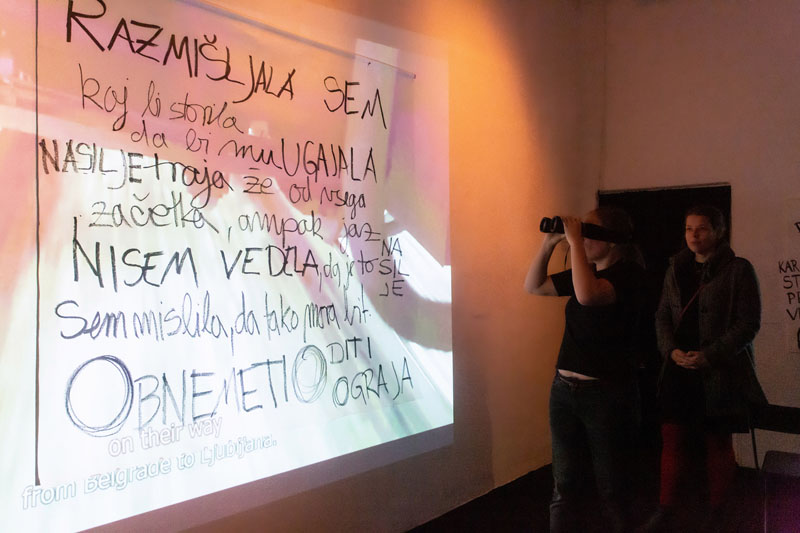 RAZMIŠLJALA SEM
kaj bi storila
da bi mu UGAJALA
NASILJE traja že od vsega
začetka, ampak jaz
NISEM VEDELA, da je to NASILJE
Sem mislila, da tako mora bit.
OBNEMETI ODITI
OGRAJA
on their way
from Belgrade to Ljubljana.
KAR
ST